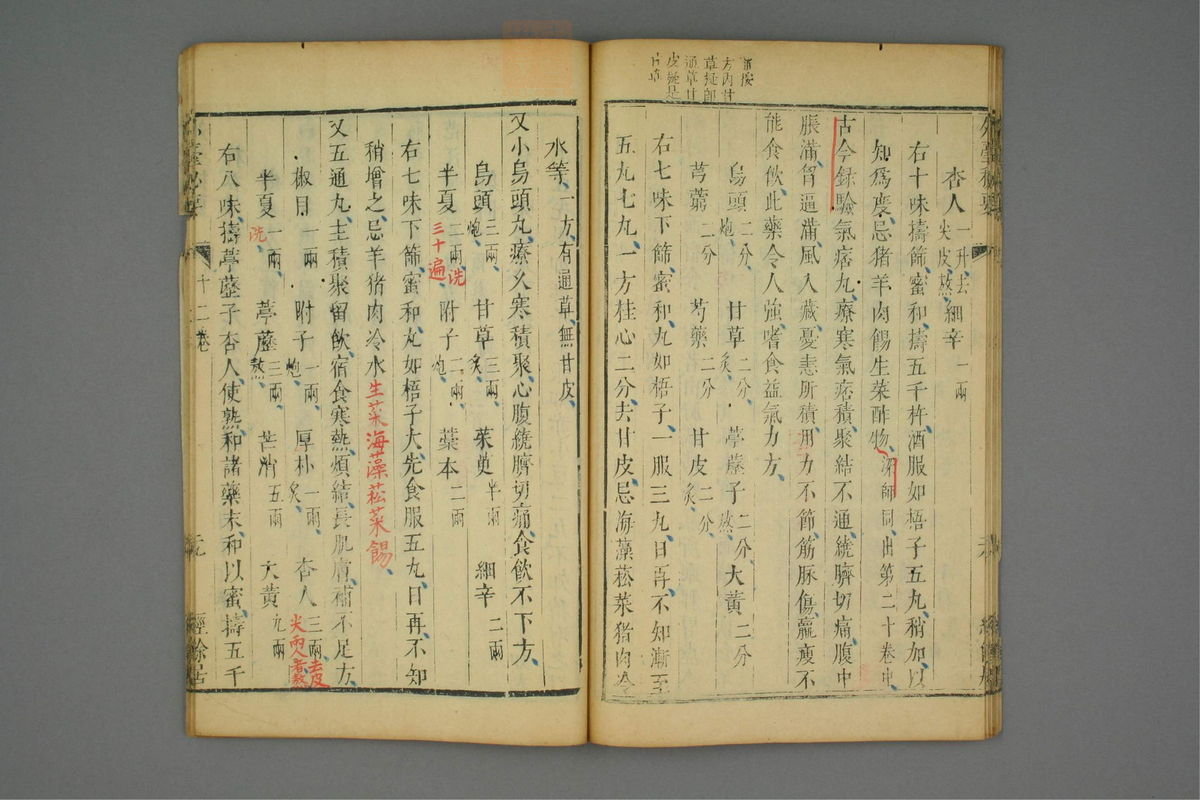 外臺秘要
杏人一升去尖皮熬 細辛一兩
右十味擣篩蜜和擣五千杵酒服如梧子五丸稍加以
知爲度忌猪羊肉餳生菜酢物深師同出第二十卷中
古今錄驗氣痞丸療寒氣痞積聚結不通繞臍切痛腹中
脹滿胷逼滿風入藏憂恚所積用力不節筋脉傷羸瘦不
能食飲此藥令人強嗜食益氣力方
烏頭二分炮 甘草二分炙 葶藶子二分熬 大黃二分
芎藭二分 芍藥二分 甘皮二分炙
右七味下篩蜜和丸如梧子一服三丸日再不知漸至
五丸七丸一方桂心二分去甘皮忌海藻菘菜猪肉冷
方內甘
草疑卽
通草甘
皮疑是
水等一方有通草無甘皮
又小烏頭丸療久寒積聚心腹繞臍切痛食飲不下方
烏頭三兩炮 甘草三兩炙 茱萸半兩 細辛二兩
半夏二兩洗三十遍 附子二兩炮 藁本二兩
右七味下篩蜜和丸如梧子大先食服五丸日再不知
稍增之忌羊猪肉冷水生菜海藻菘菜餳
又五通丸主積聚留飲宿食寒熱煩結長肌膚補不足方
椒目一兩 附子一兩炮 厚朴一兩炙 杏人三兩去皮尖兩人者熬
半夏一兩洗 葶藶三兩熬 芒消五兩 大黃九兩
右八味擣葶藶子杏人使熟和諸藥末和以蜜擣五千
十二卷
經餘居